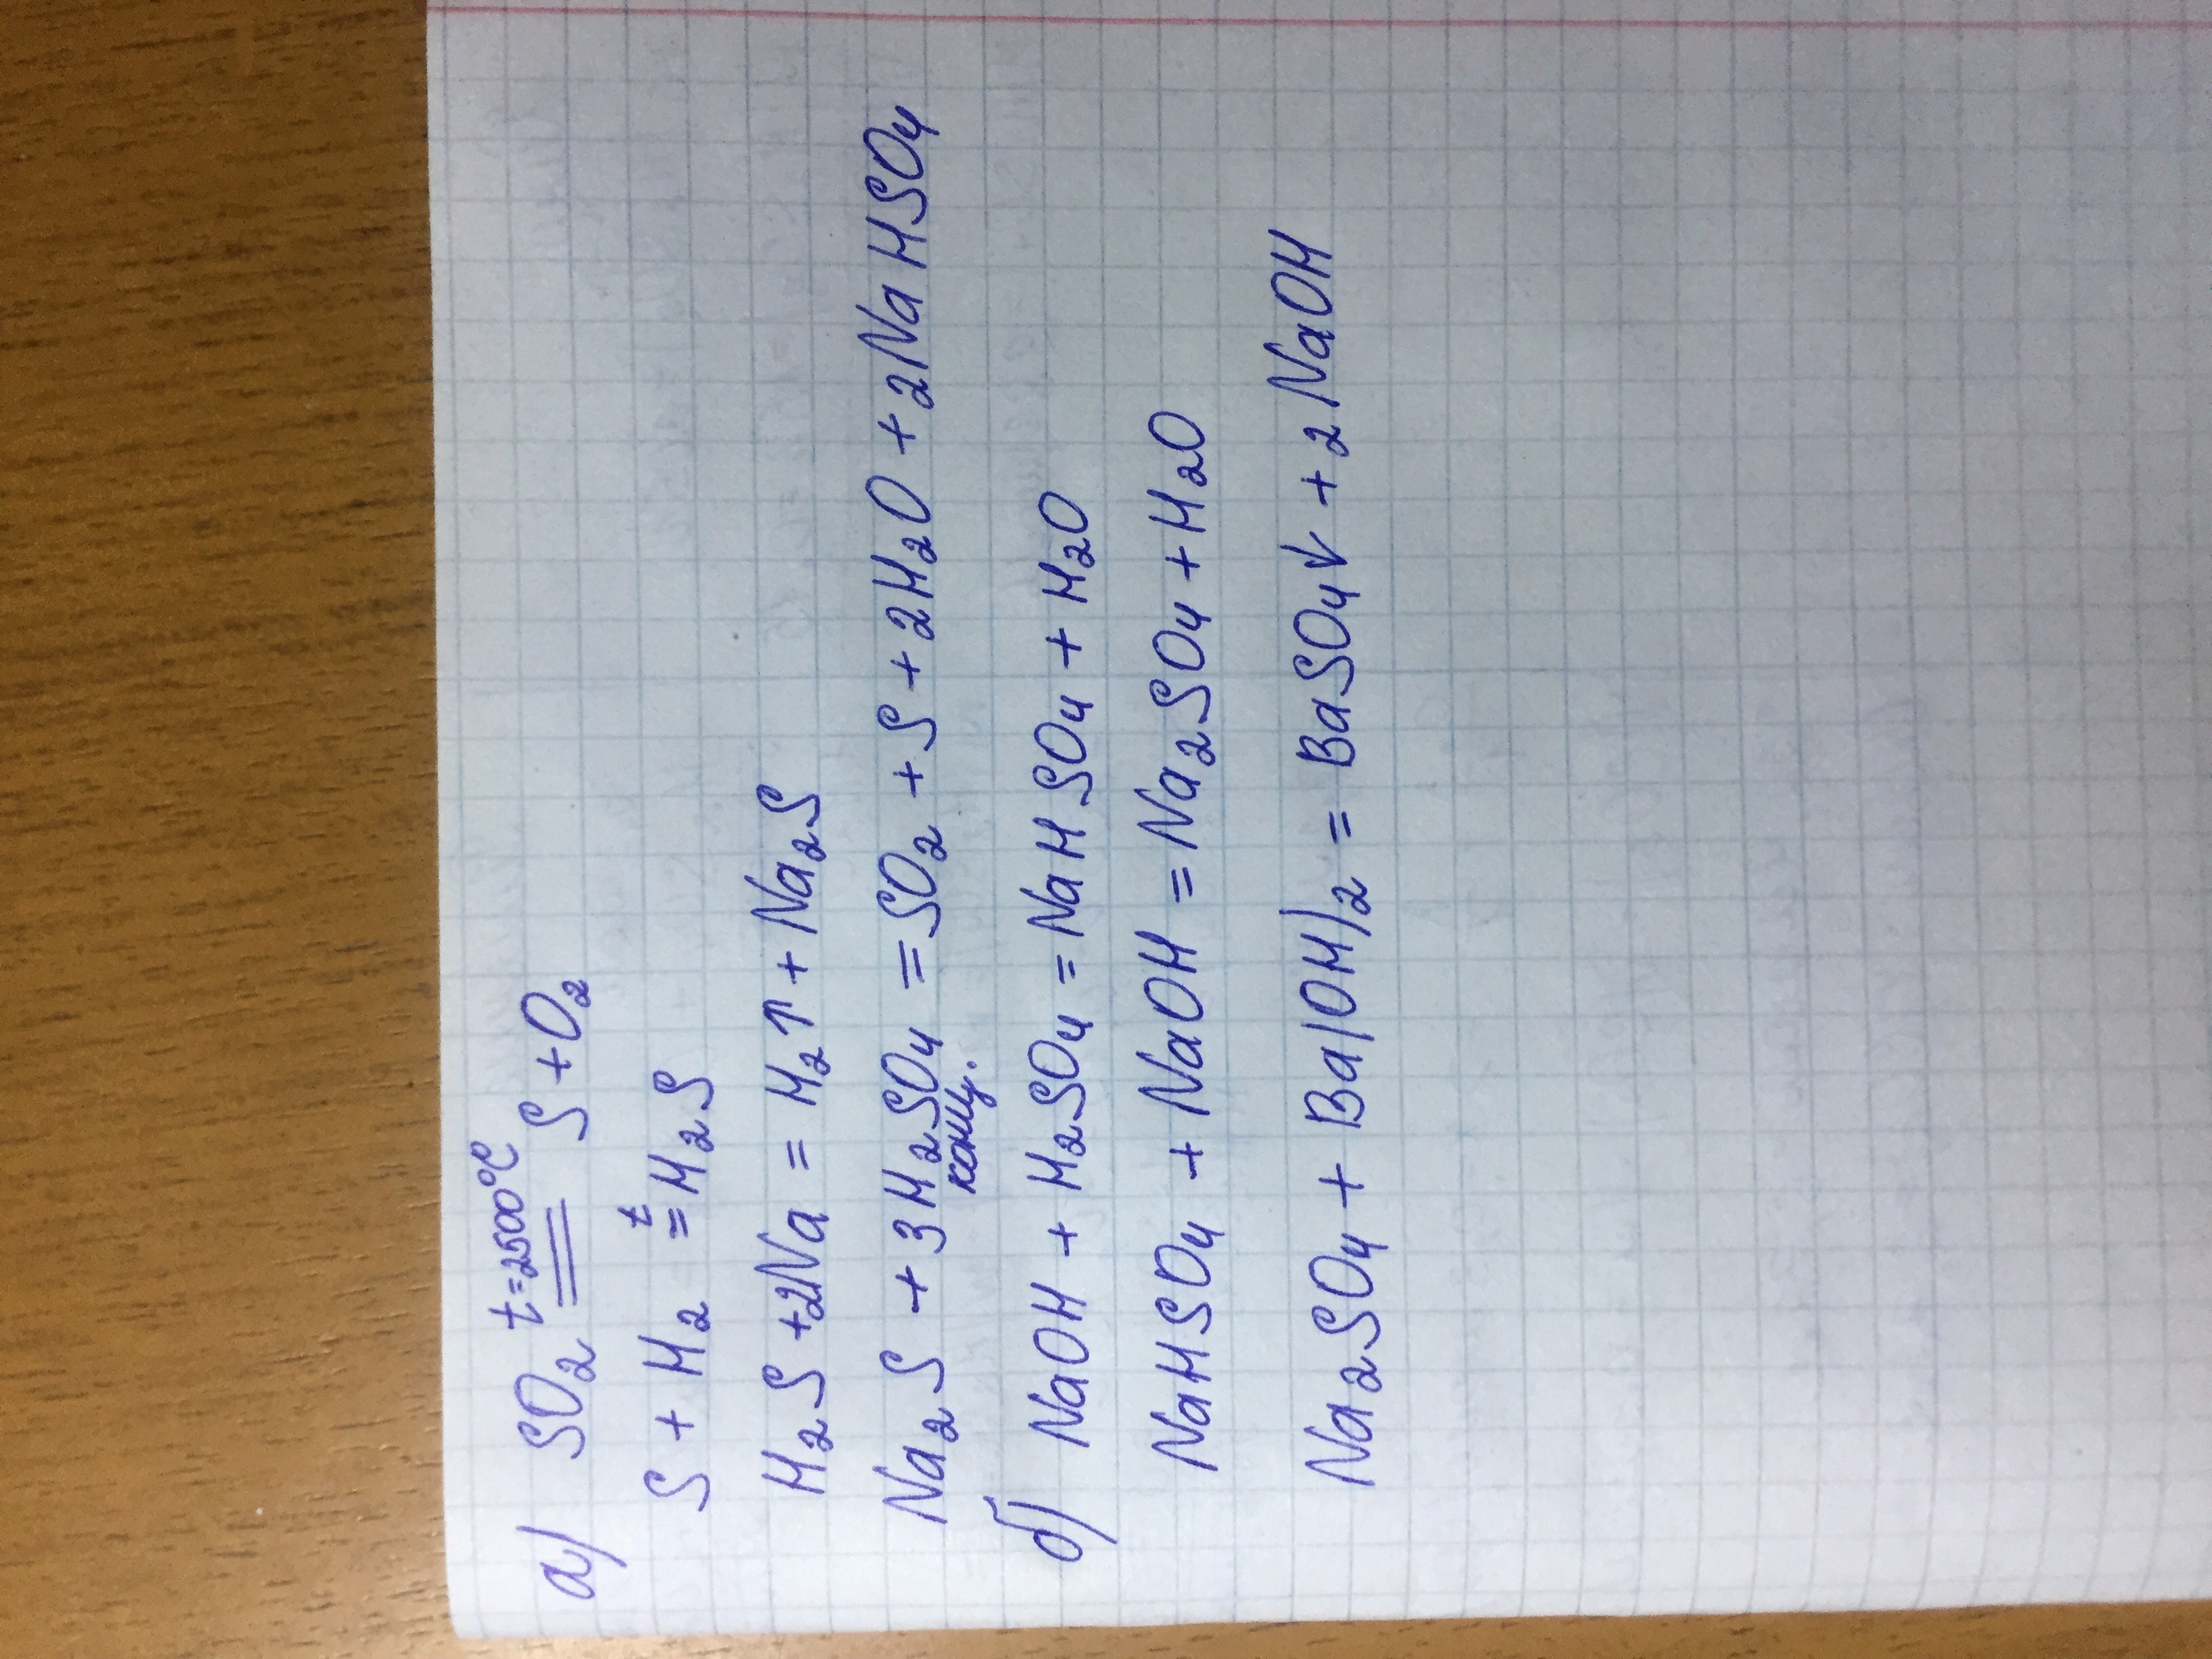 а) SO₂ t=2500°C = S + O₂
S + H₂ t = H₂S
H₂S + 2Na = H₂↑ + Na₂S
Na₂S + 3H₂SO₄ = SO₂ + S + 2H₂O + 2NaHSO₄
конц.
б) NaOH + H₂SO₄ = NaHSO₄ + H₂O
NaHSO₄ + NaOH = Na₂SO₄ + H₂O
Na₂SO₄ + Ba(OH)₂ = BaSO₄↓ + 2NaOH